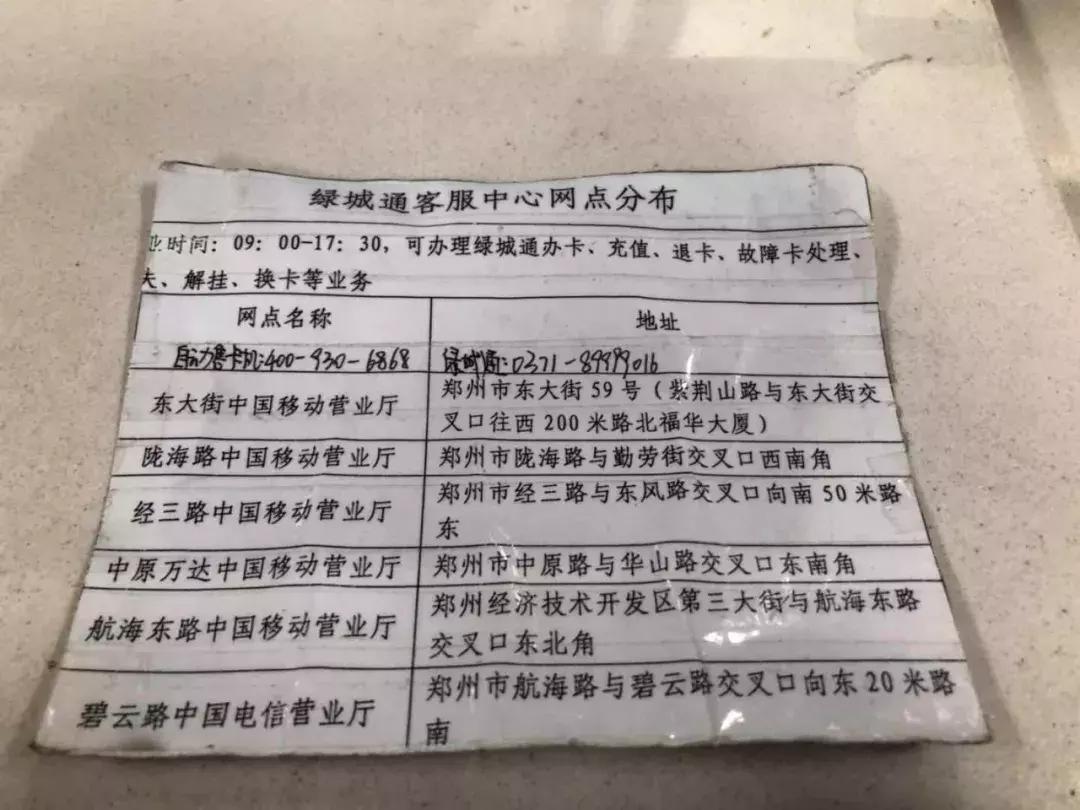 绿城通客服中心网点分布
业时间：09：00-17：30，可办理绿城通办卡、充值、退卡、故障卡处理、
失、解挂、换卡等业务
网点名称 地址
自动售卡机:400-930-6868 绿城通:0371-89999016
东大街中国移动营业厅 郑州市东大街 59 号（紫荆山路与东大街交
叉口往西 200 米路北福华大厦）
陇海路中国移动营业厅 郑州市陇海路与勤劳街交叉口西南角
经三路中国移动营业厅 郑州市经三路与东风路交叉口向南 50 米路
东
中原万达中国移动营业厅 郑州市中原路与华山路交叉口东南角
航海东路中国移动营业厅 郑州经济技术开发区第三大街与航海东路
交叉口东北角
碧云路中国电信营业厅 郑州市航海路与碧云路交叉口向东 20 米路
南